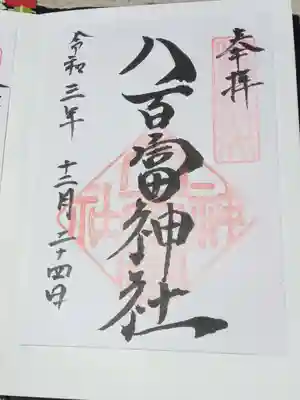 奉拝
八百富神社
令和三年 十二月二十四日